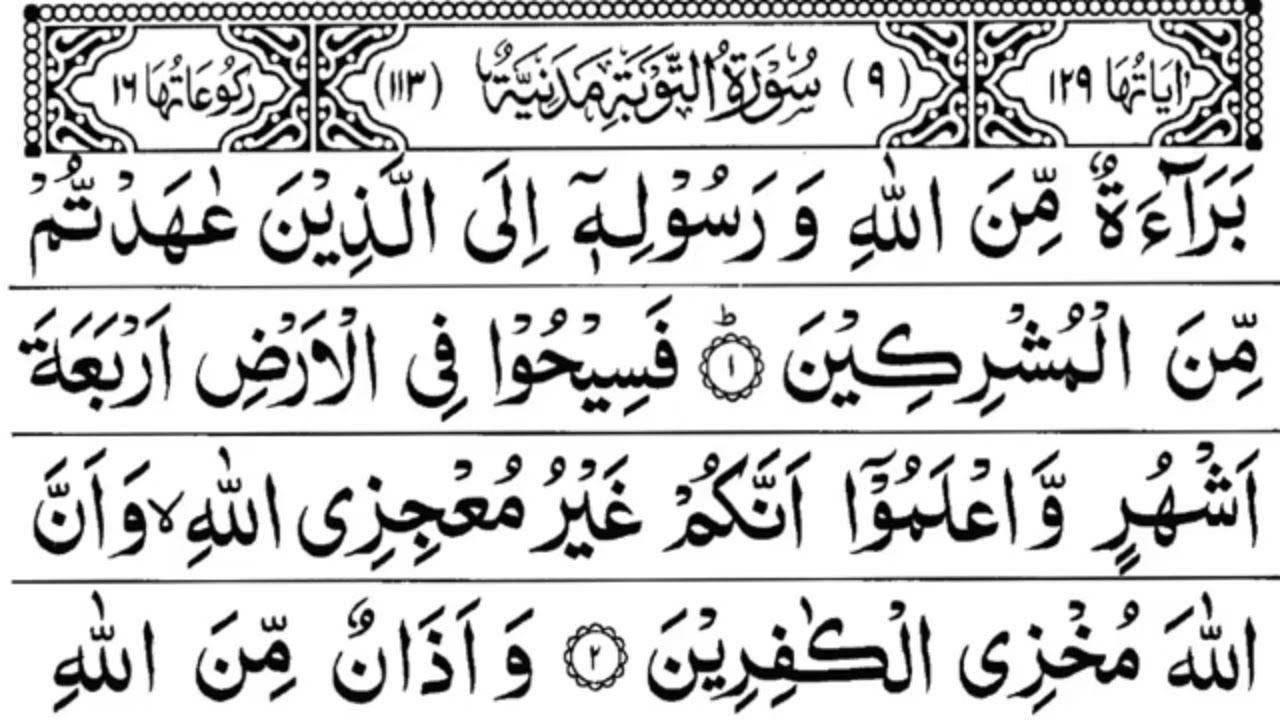 اٰیَاتُهَا ١٢٩ (٩) سُوْرَةُ التَّوْبَةِ مَدَنِیَّةٌ (١١٣) رُكُوْعَاتُهَا ١٦
بَرَآءَةٌ مِّنَ اللّٰهِ وَ رَسُوْلِهٖۤ اِلَى الَّذِیْنَ عٰهَدْتُّمْ
مِّنَ الْمُشْرِكِیْنَ ؕ﴿١﴾ فَسِیْحُوْا فِی الْاَرْضِ اَرْبَعَةَ
اَشْهُرٍ وَّ اعْلَمُوْۤا اَنَّكُمْ غَیْرُ مُعْجِزِی اللّٰهِ ۙ وَ اَنَّ
اللّٰهَ مُخْزِی الْكٰفِرِیْنَ ﴿٢﴾ وَ اَذَانٌ مِّنَ اللّٰهِ